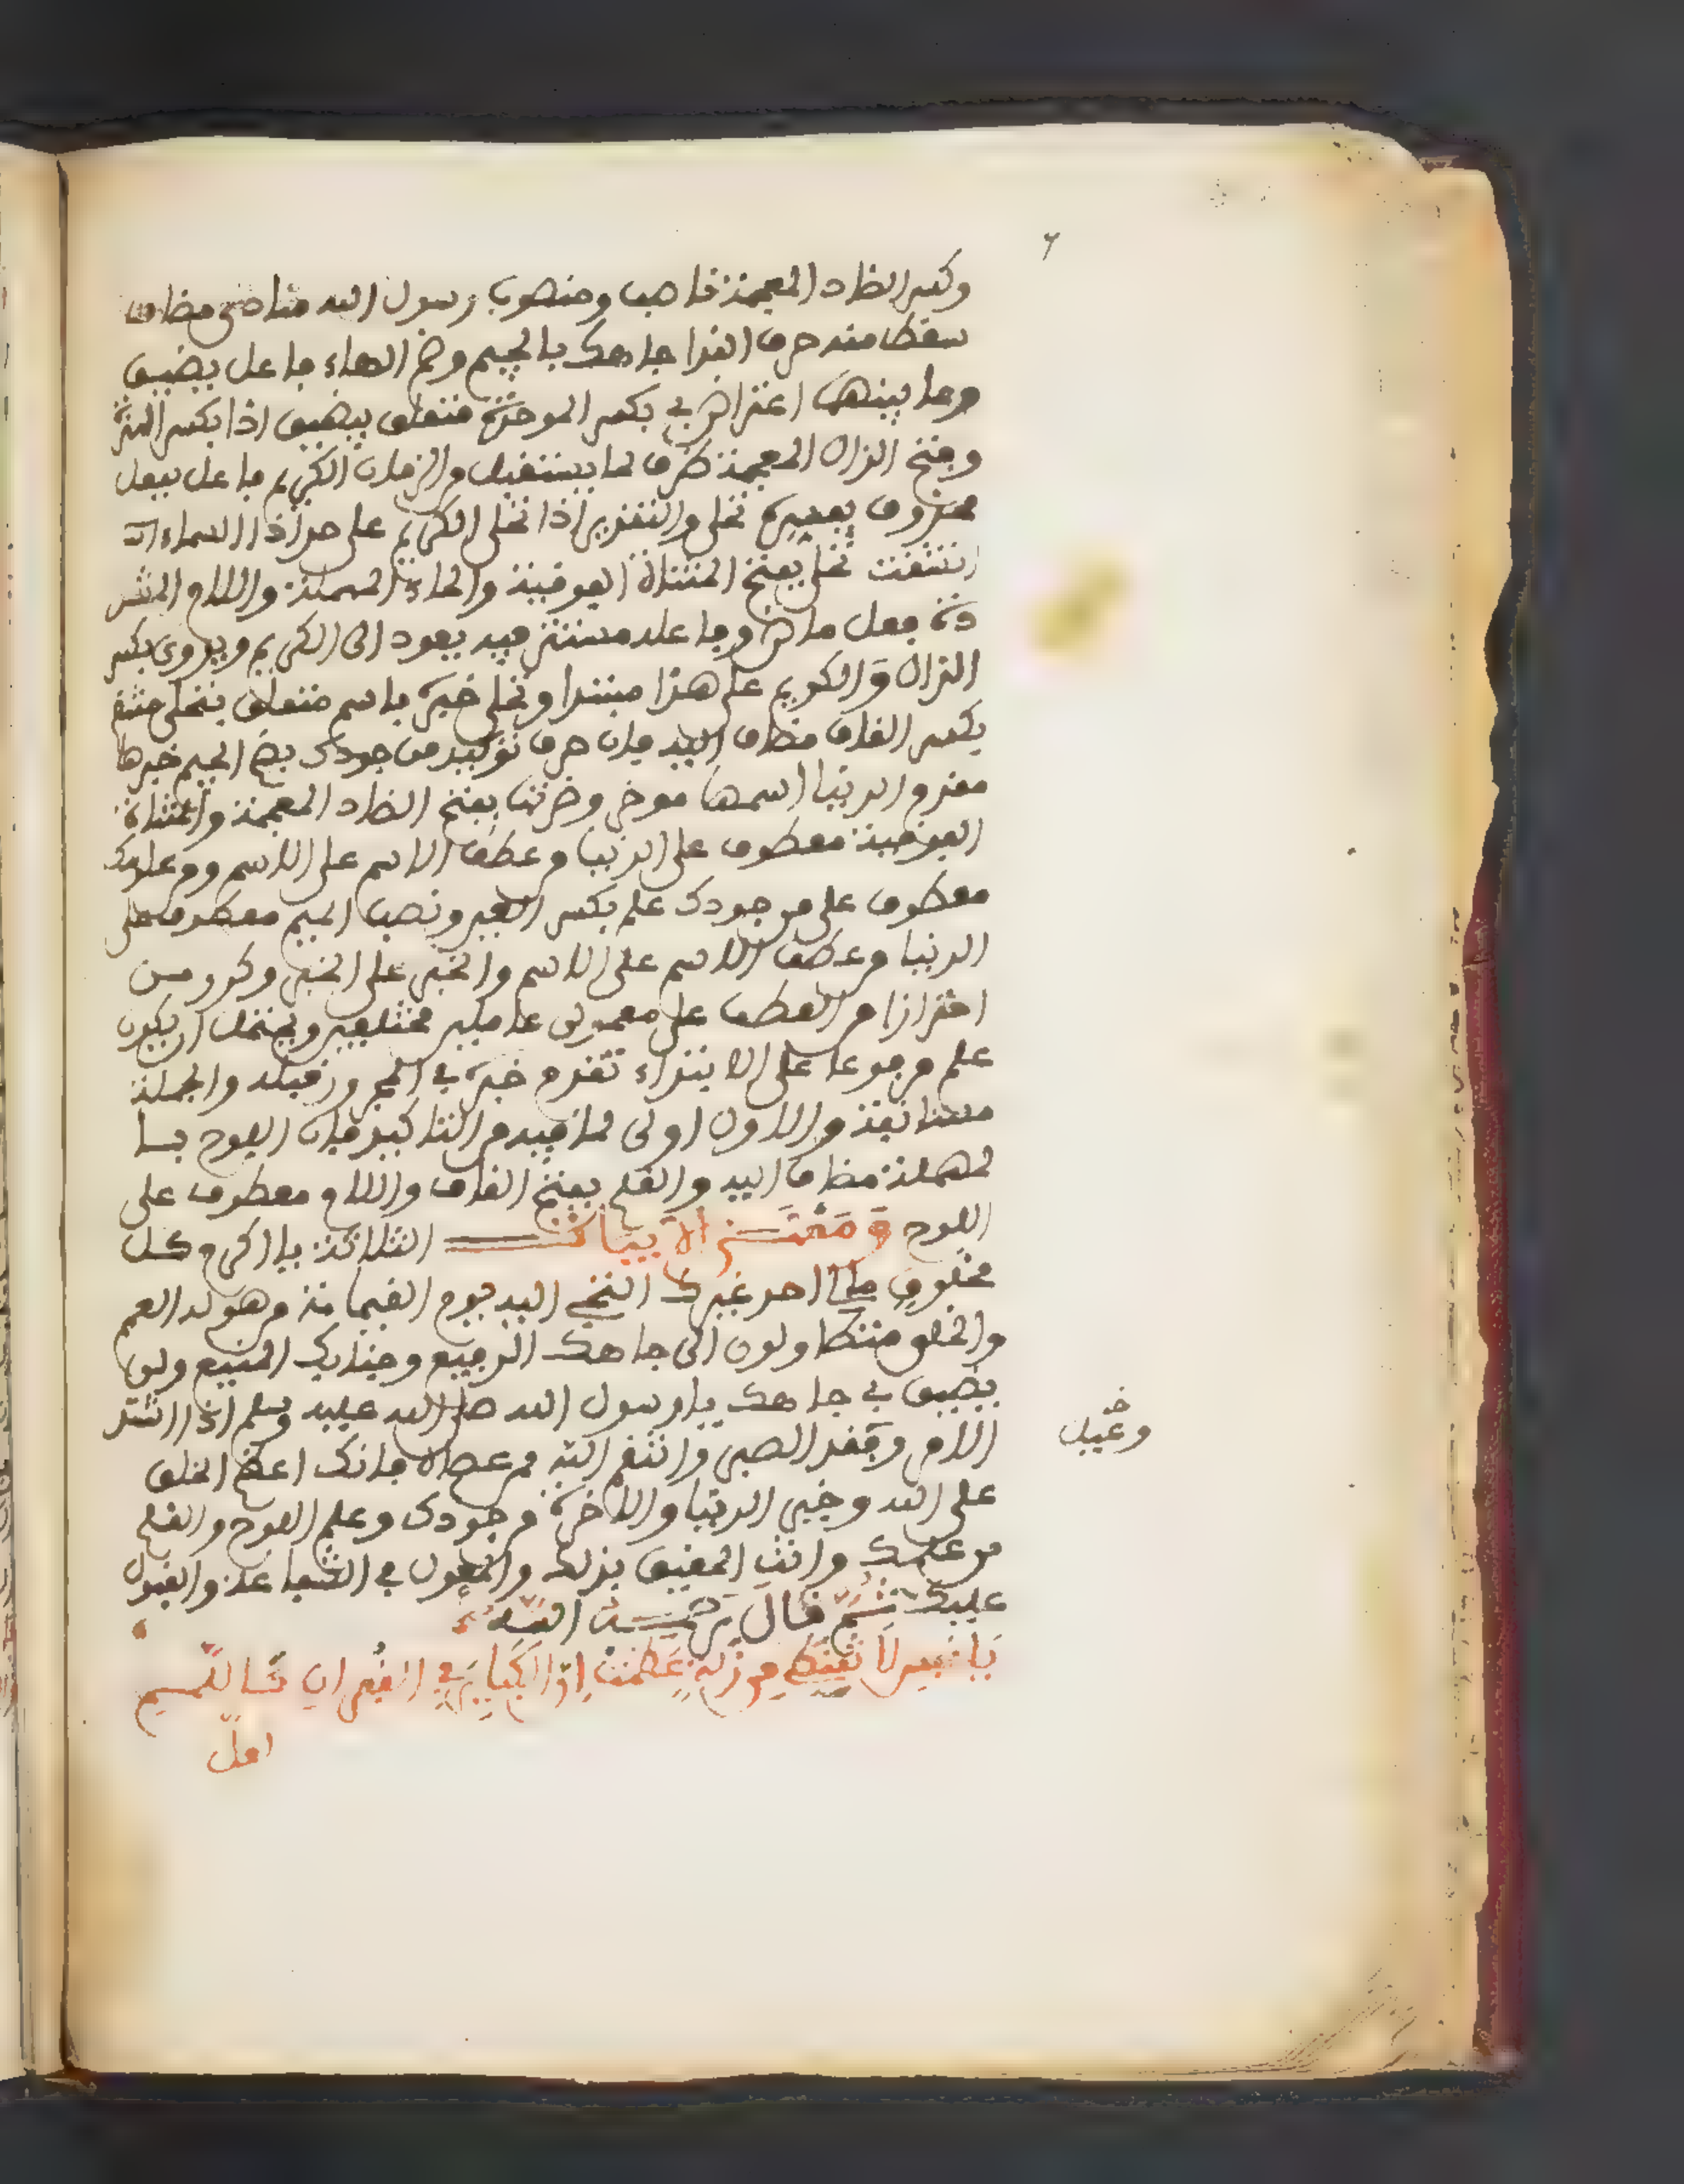 وكسر الضاد المعجمة ناصب ومنصوب رسول الله منادى مضاف
سقط منه حرف الندا جاهك بالجيم وضم الهاء فاعل يضيق
وما بينهما اعتراض بي بكسر الموحدة متعلق بيضيق اذا بكسر الهمزة
وفتح الذال المعجمة ظرف لما يستقبل من الزمان الكريم فاعل بفعل
محذوف يفسره تحلى والتقدير اذا تحلى الكريم على حد اذا السماء
انشقت تحلى بفتح المثناة الفوقية والحاء المهملة واللام المشد
دة فعل ماض وفاعله مستتر فيه يعود الى الكريم ويروى بكسر
الذال والكريم على هذا مبتدا وتحلى خبره باسم متعلق بتحلى منتقم
بكسر القاف مضاف اليه فان حرف توكيد من جودك بضم الجيم خبرها
مقدم الدنيا اسمها موخر وضرتها بفتح الضاد المعجمة والمثناة
الفوقية معطوف على الدنيا من عطف الاسم على الاسم ومن علومك
معطوف على من جودك علم بكسر العين ونصب الميم معطوف على
الدنيا من عطف الاسم على الاسم والخبر على الخبر وكرر من
احترازا من العطف على معمولى عاملين مختلفين ويحتمل ان يكون
علم مرفوعا على الابتداء تقدم خبره في المجرور قبله والجملة
مستانفة والاول اولى لما فيه من التاكيد فان اللوح بــا
لمهملة مضاف اليه والقلم بفتح القاف واللام معطوف على
اللوح وَمَعْنَـــى الابيات الثلاثة يا اكرم كل
مخلوق مالى احد غيرك التجى اليه يوم القيامة من هوله العمم
والخلق متطاولون الى جاهك الرفيع وجنابك المنيع ولن
يضيق بي جاهك يا رسول الله صلى الله عليه وسلم اذا اشتد
الامر وفقد الصبر وانتقم الله ممن عصاه فانك اعظم الخلق
على الله وخير الدنيا والاخرة من جودك وعلم اللوح والقلم
من علمك وانت الحقيق بذلك والمعول في الشفاعة والقبول
عليك ثُمَّ قال رحمـــه اللَّه
خـ
وقيل
يَا نَفْسِ لاَ تَقْنَطِي مِن زَلَّةٍ عَظُمَتْ اِنَّ الكَبَايِرَ فِي الغُفْرانِ كَاللَّمَمِ
لعلّ